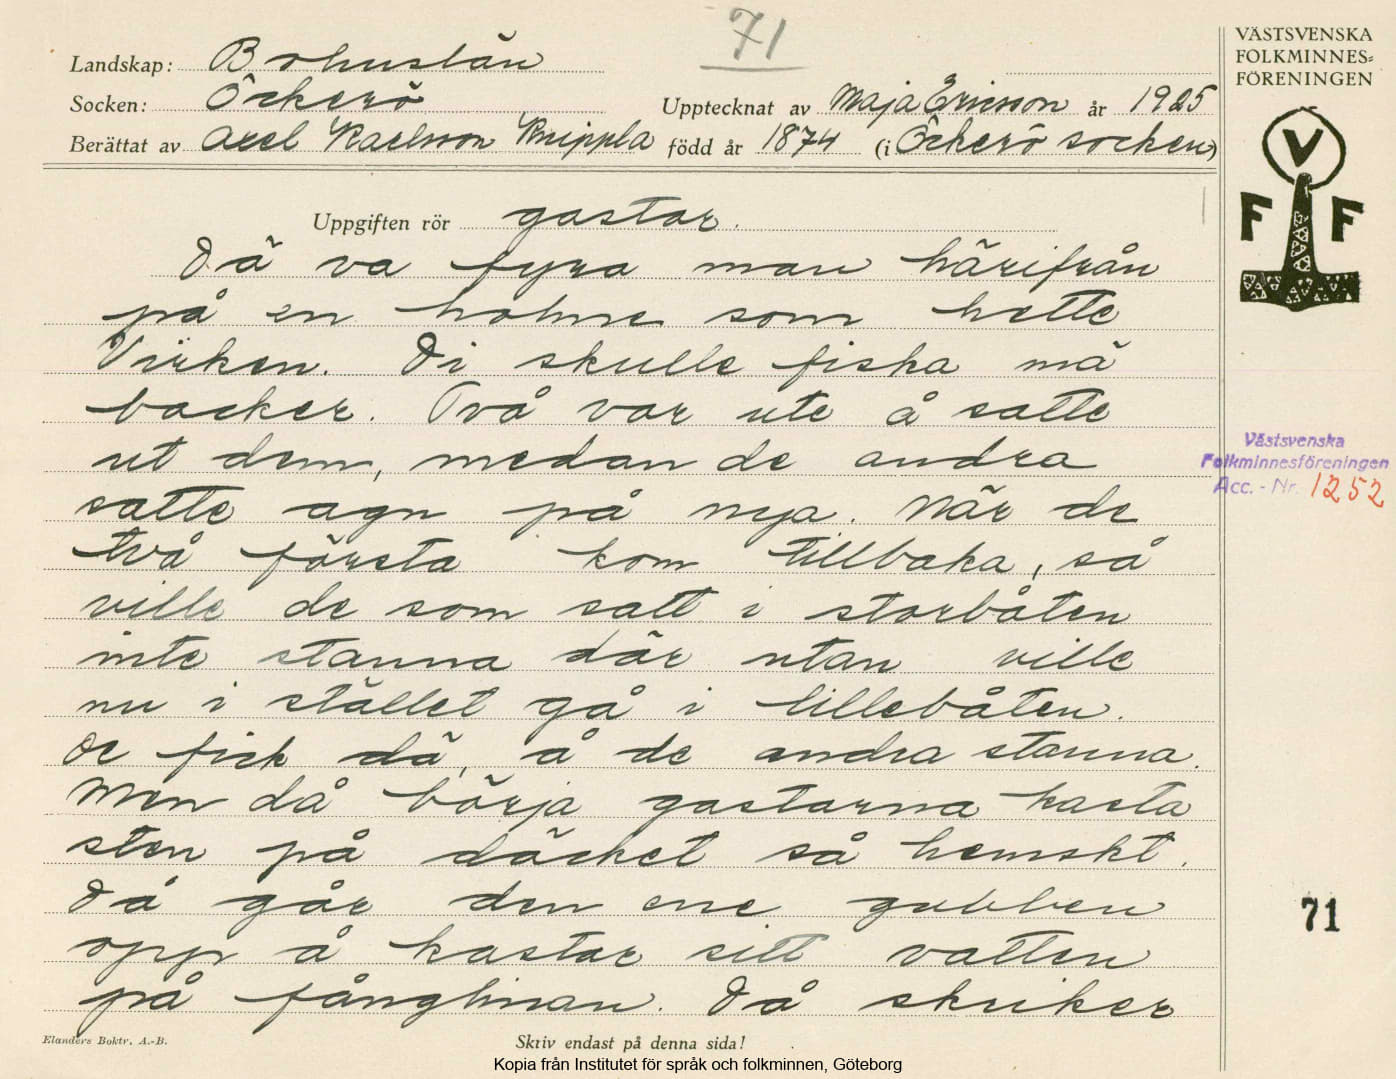 71
VÄSTSVENSKA
FOLKMINNES-
FÖRENINGEN
Landskap: Bohuslän
Socken: Öckerö
Upptecknat av Maja Ericsson år 1925
Berättat av Axel Karlsson Knippla född år 1874 (i Öckerö socken)
V
F F
Uppgiften rör gastar.
Dä va fyra man härifrån
på en holme som hette
Virken. Di skulle fiska mä
backer. Två var ute å satte
ut dem, medan de andra
satte agn på nya. När de
två första kom tillbaka, så
ville de som satt i storbåten
inte stanna där utan ville
nu i stället gå i lillebåten.
De fick dä, å de andra stanna.
Men då börja gastarna kasta
sten på däcket så hemskt.
Då går den ene gubben
opp å kastar sitt vatten
på fånglinan. Då skriker
Västsvenska
Folkminnesföreningen
Acc. - Nr. 1252
71
Elanders Boktr. A.-B.
Skriv endast på denna sida!
Kopia från Institutet för språk och folkminnen, Göteborg